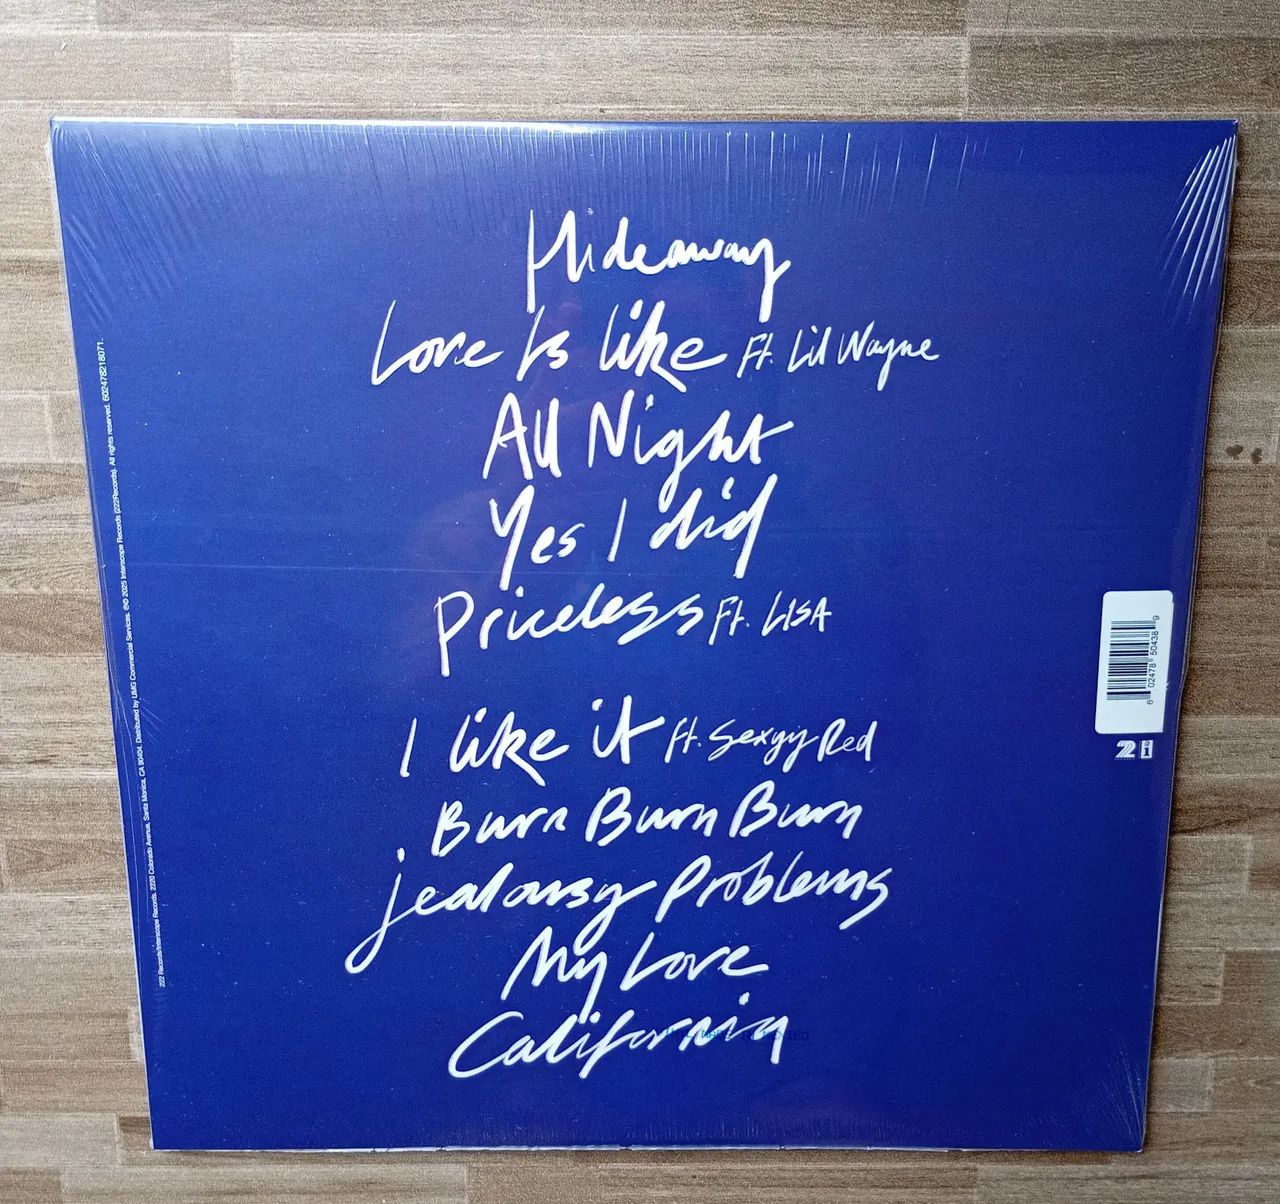 Hideaway
Love Is like Ft. Lil Wayne
All Night
Yes I did
Priceless Ft. LISA
I like it ft. Sexyy Red
Burn Burn Burn
jealousy Problems
My Love
California
222 Records/Interscope Records. 2220 Colorado Avenue, Santa Monica, CA 90404. Distributed by UMG Commercial Services. ℗© 2025 Interscope Records (222Records). All rights reserved. 602478218071.
6 02478 50438 9
2 i